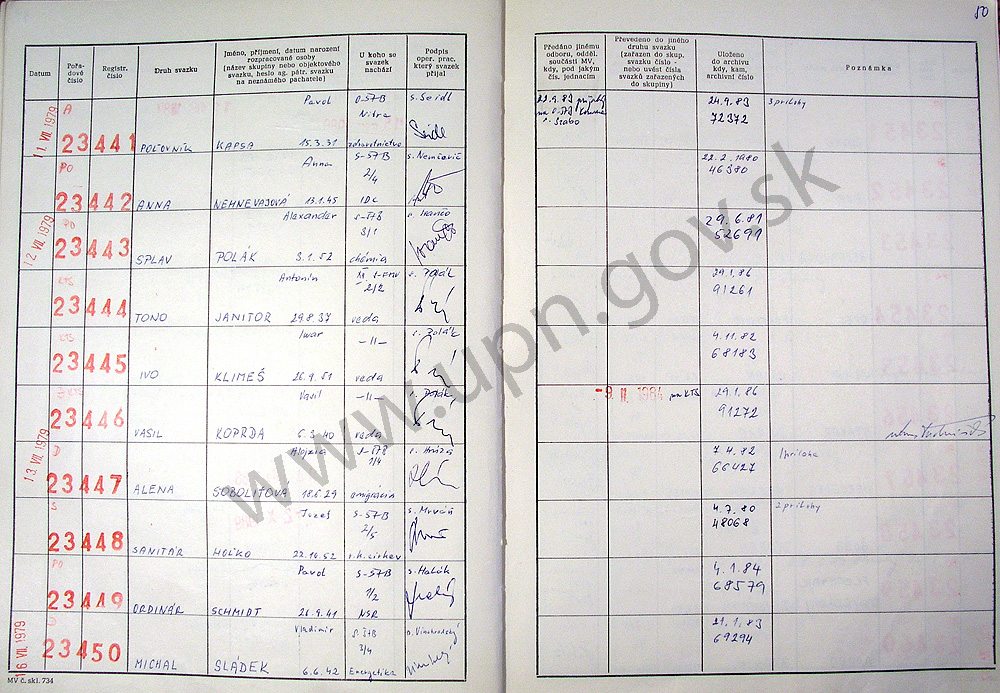 50
Datum
Pořadové číslo
Registr. číslo
Druh svazku
Jméno, příjmení, datum narození rozpracované osoby (název skupiny nebo objektového svazku, heslo ag. pátr. svazku na neznámého pachatele)
U koho se svazek nachází
Podpis oper. prac. který svazek přijal
Předáno jinému odboru, odděl. součásti MV, kdy, pod jakým čís. jednacím
Převedeno do jiného druhu svazku (zařazen do skup. svazku číslo - nebo uvést čísla svazků zařazených do skupiny)
Uloženo do archivu kdy, kam, archivní číslo
Poznámka
11. VII. 1979
A
23441
POĽOVNÍK
Pavol
KAPSA 15.3.31
Nitra
zdravotníctvo
s. Seidl
22.9.83
s. Szabo
24.9.83
72372
3 prílohy
PO
23442
ANNA
Anna
NEMNEVAJOVÁ 13.1.45
S-ŠTB
2/4
IDC
22.2.1980
46380
12. VII. 1979
PO
23443
SPLAV
Alexander
POLÁK 3.1.52
S-ŠTB
3/1
chémia
s. Ivančo
29.6.81
52691
KTS
23444
TONO
Antonín
JANITOR 29.8.37
2/2
veda
s. Polák
29.1.86
91261
KTS
23445
IVO
Iwar
KLIMEŠ 26.9.51
-II-
veda
s. Polák
4.11.82
68183
23446
VASIL
Vasil
KOPRDA 6.3.40
-II-
veda
s. Polák
-9. II. 1984
na KTS
29.1.86
91272
13. VII. 1979
D
23447
ALENA
Alojzia
SOBOLIČOVA 18.6.29
S-ŠTB
emigrácia
7.4.82
66427
1 príloha
S
23448
SANITÁR
Jozef
HOĽKO 22.10.52
S-ŠTB
2/5
r.k. cirkev
4.7.80
48068
2 prílohy
PO
23449
ORDINÁR
Pavol
SCHMIDT 26.9.41
S-ŠTB
1/2
NSR
s. Halák
4.1.84
68579
16. VII. 1979
23450
MICHAL
Vladimír
SLÁDEK 6.6.42
S ŠTB
3/4
Energetika
s. Vinohradský
21.1.83
69294
MV č. skl. 734
www.upn.gov.sk